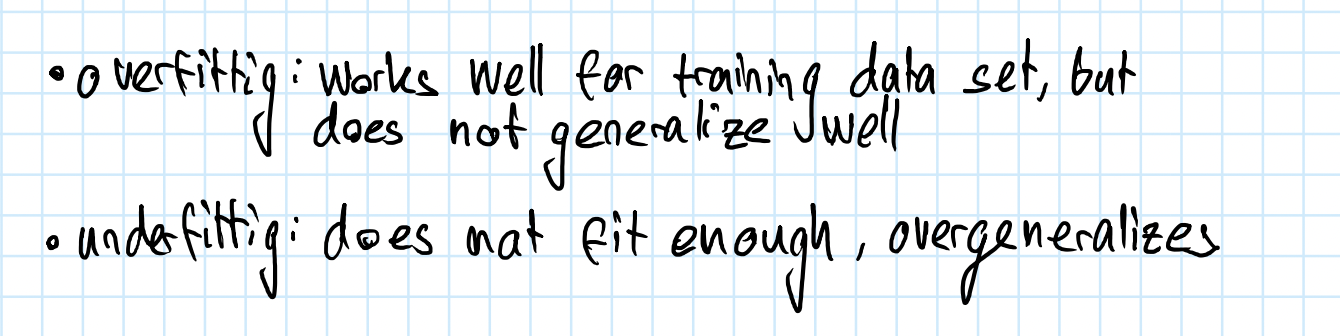 • overfittig: works well for training data set, but
does not generalize well
• underfittig: does not fit enough, overgeneralizes